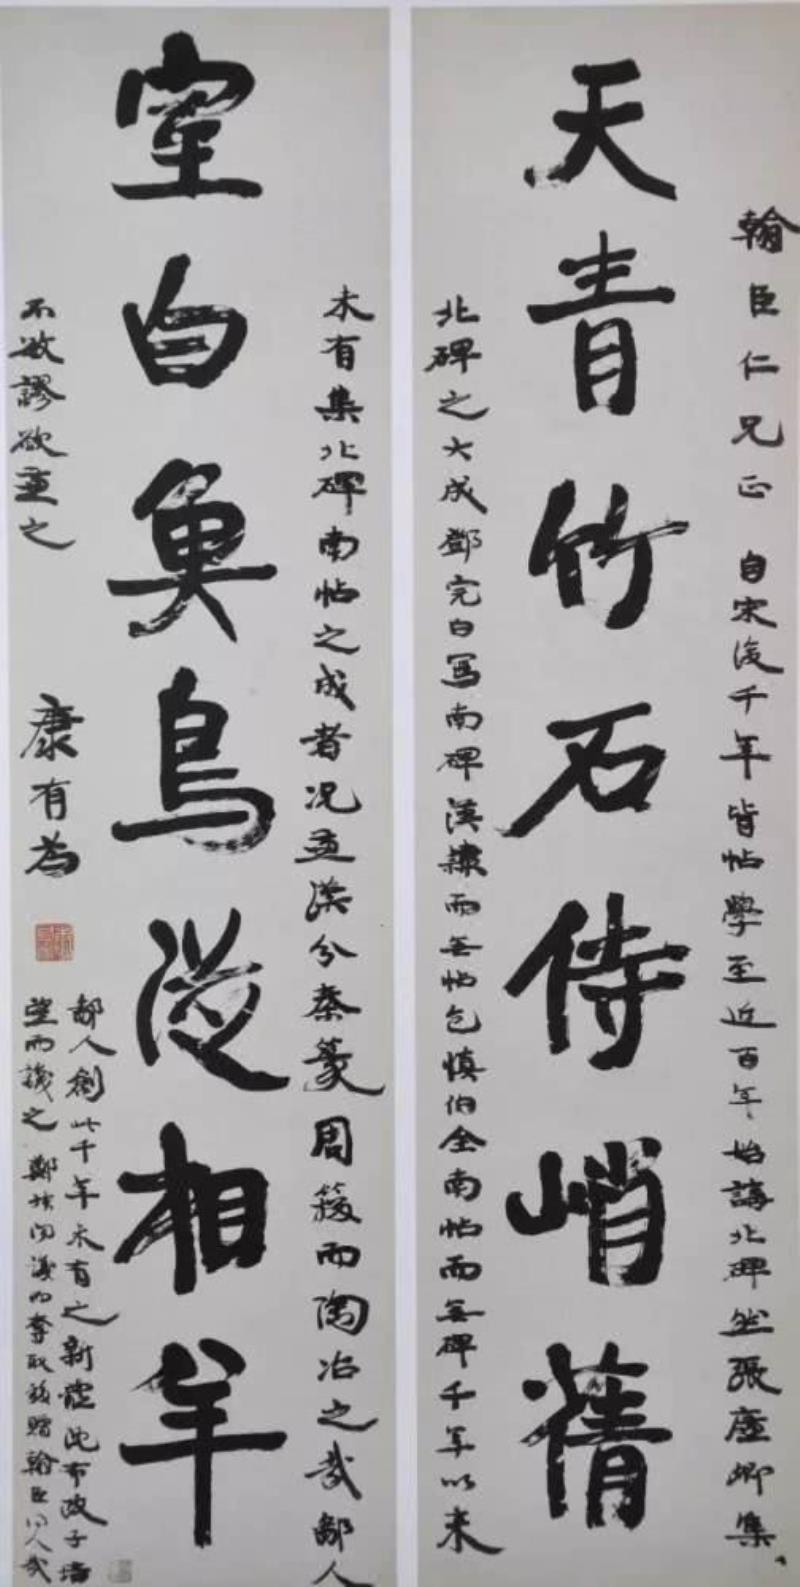 翰臣仁兄正 自宋後千年皆帖學至近百年始講北碑然張廉卿集
天青竹石侍峭蒨
北碑之大成鄧完白寫南碑漢隸而無帖包慎伯全南帖而無碑千年以来
未有集北碑南帖之成者况兼漢分秦篆周籀而陶冶之哉鄙人
室白魚鳥從相羊
不敏謬欲兼之
康有為
鄙人創此千年未有之新體沈布政子培
望而識之 鄭 奪取 贈翰臣 哉